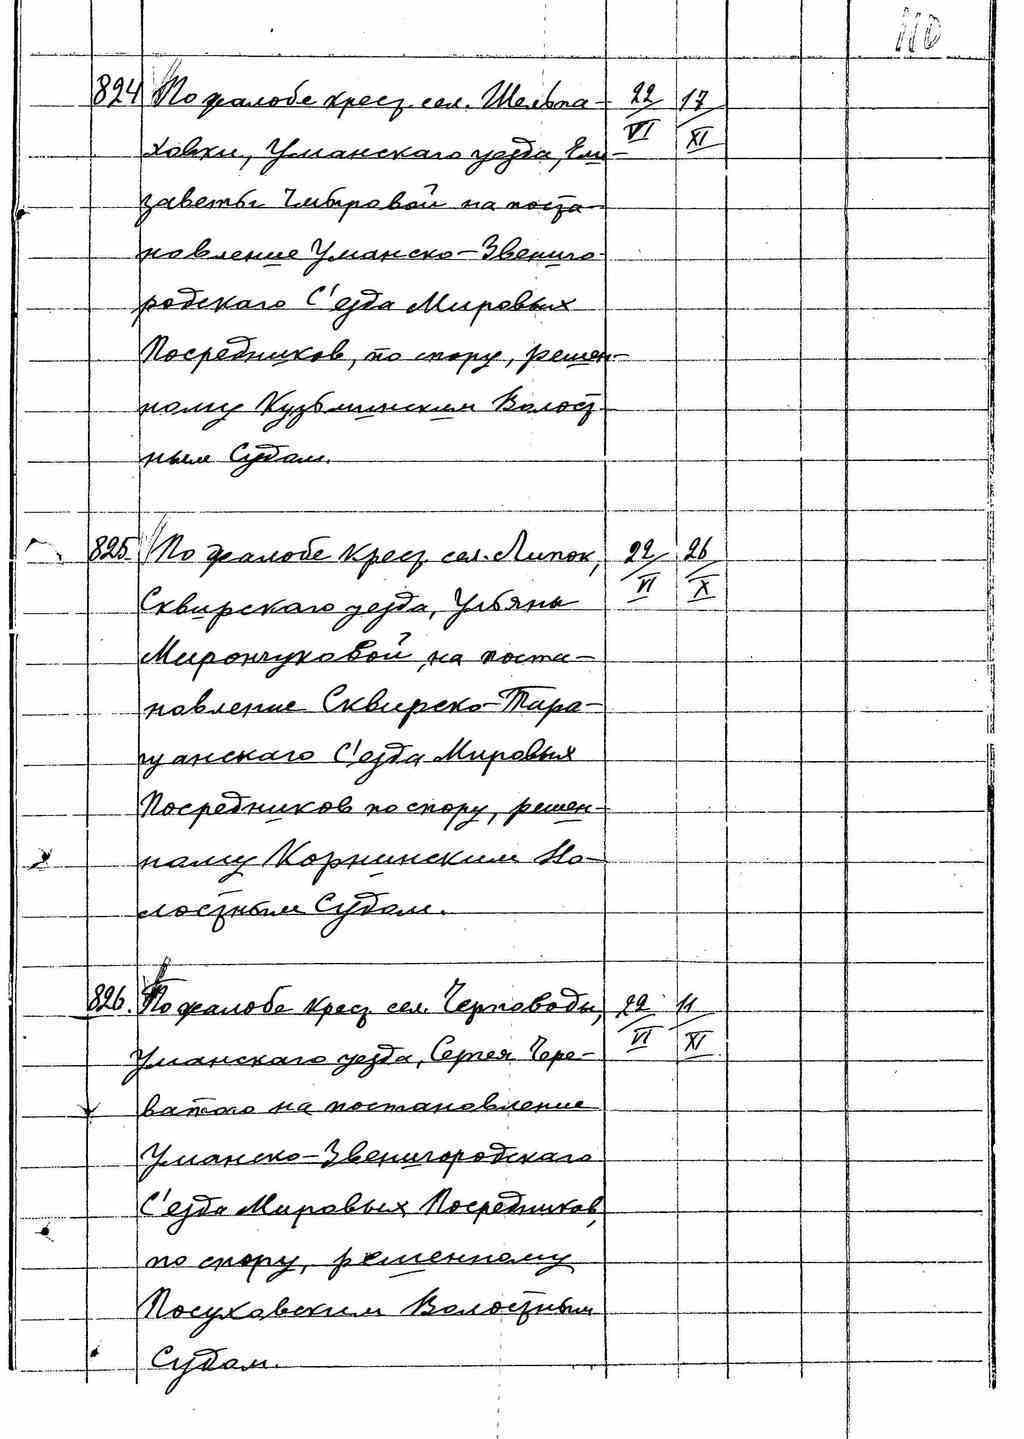 110
824 По жалобе крест. сел. Шельпа- 22/VI 17/XI
ховки, Уманскаго уезда, Ели-
заветы Чибировой на поста-
новление Уманско-Звениго-
родскаго С'езда Мировых
Посредников, по спору, решен-
ному Кузьминским Волост-
ным Судом.
825. По жалобе крест. сел. Липок, 22/VI 26/X
Сквирскаго уезда, Ульяны
Мирончуковой, на поста-
новление Сквирско-Тара-
щанскаго С'езда Мировых
Посредников по спору, решен-
ному Корнинским Во-
лостным Судом.
826. По жалобе крест. сел. Черповоды, 22/VI 11/XI
Уманскаго уезда, Сергея Чере-
ватого на постановление
Уманско-Звенигородскаго
С'езда Мировых Посредников,
по спору, решенному
Посуховским Волостным
Судом.